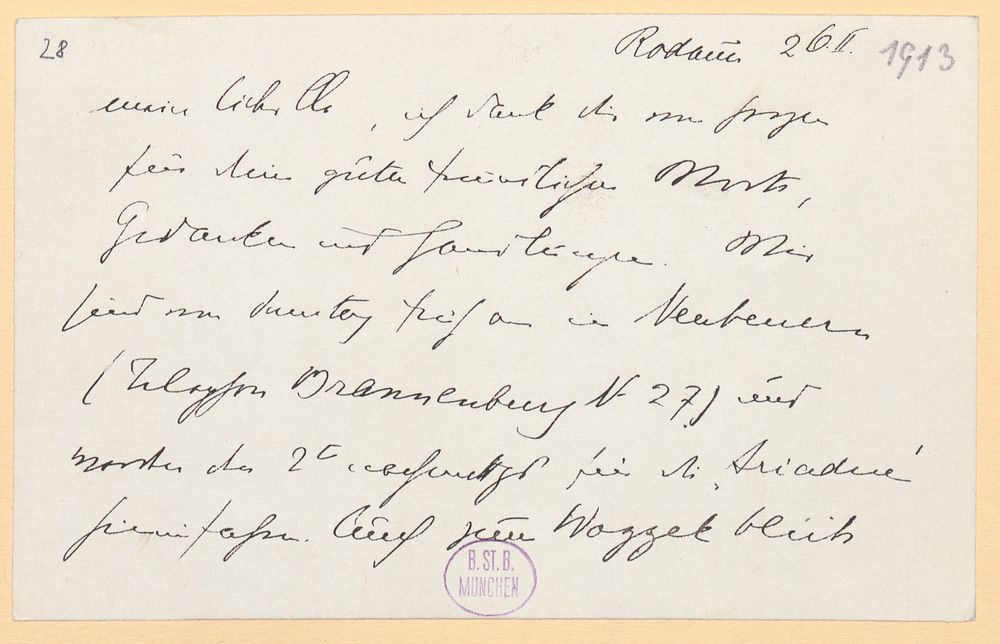 28
Rodaun 26. II. 1913
meine liebe Ella, ich danke dir von ganzen
für deine guten freundlichen Worte,
Gedanken und Handlungen. Wir
sind von Samstag früh an in Neubeuern
(Telephon Brannenburg N 27) und
werden den 2t nachmittgs für die „Ariadne“
hereinfahren. Auch zum Wozzek bleib
B. ST. B.
MÜNCHEN